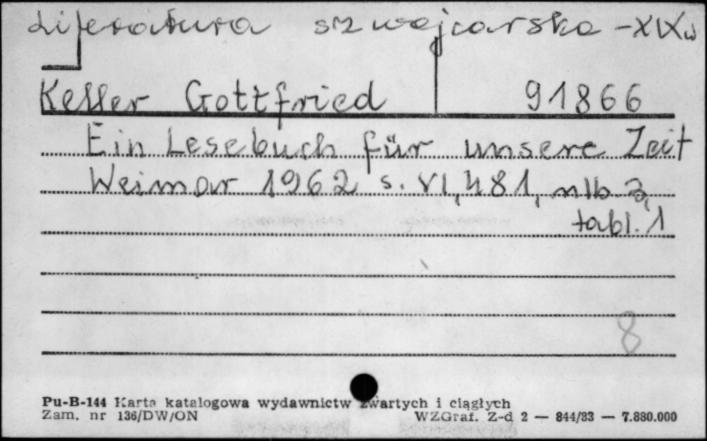 Literatura szwajcarska - XIX w
Keller Gottfried 91866
Ein Lesebuch für unsere Zeit
Weimar 1962 s. VI, 481, nlb 3,
tabl. 1
8
Pu-B-144 Karta katalogowa wydawnictw zwartych i ciągłych
Zam. nr 136/DW/ON WZGraf. Z-d 2 — 844/83 — 7.880.000